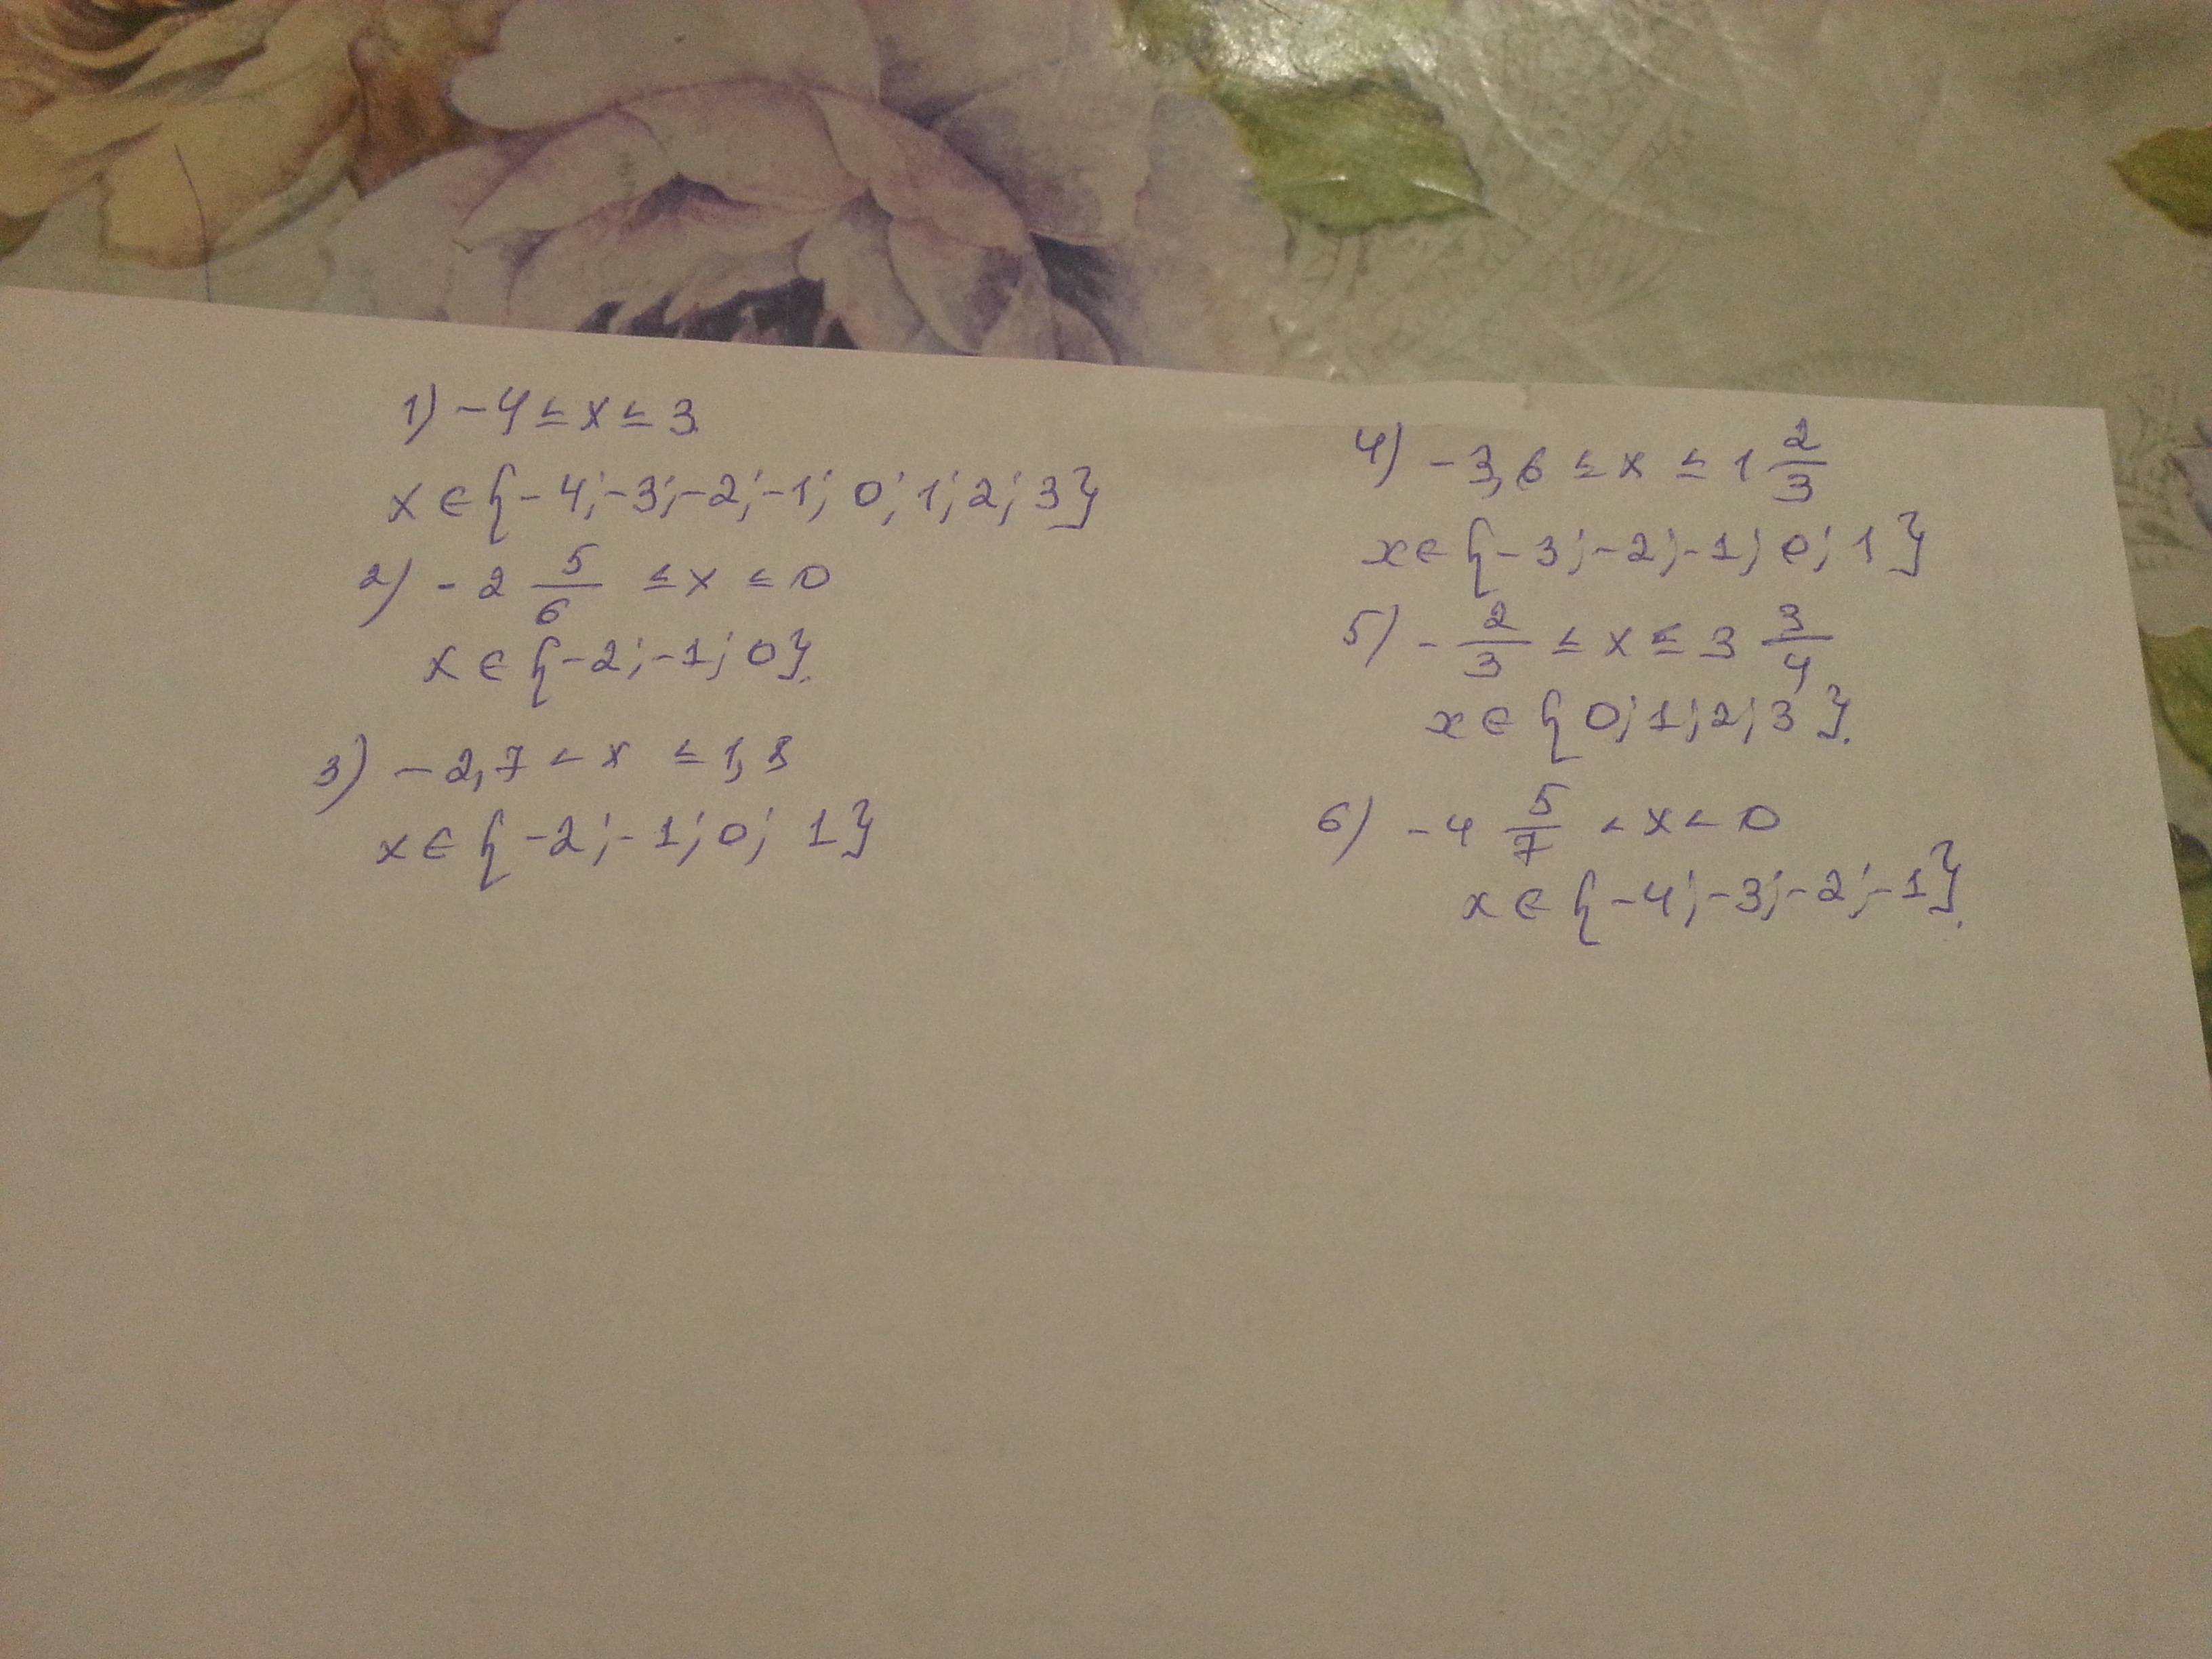 1) -4 ≤ x ≤ 3
x ∈ {-4; -3; -2; -1; 0; 1; 2; 3}
2) -2 5/6 ≤ x ≤ 0
x ∈ {-2; -1; 0}.
3) -2,7 < x ≤ 1,8
x ∈ {-2; -1; 0; 1}
4) -3,6 ≤ x ≤ 1 2/3
x ∈ {-3; -2; -1; 0; 1}
5) -2/3 ≤ x ≤ 3 3/4
x ∈ {0; 1; 2; 3}.
6) -4 5/7 < x < 0
x ∈ {-4; -3; -2; -1}.